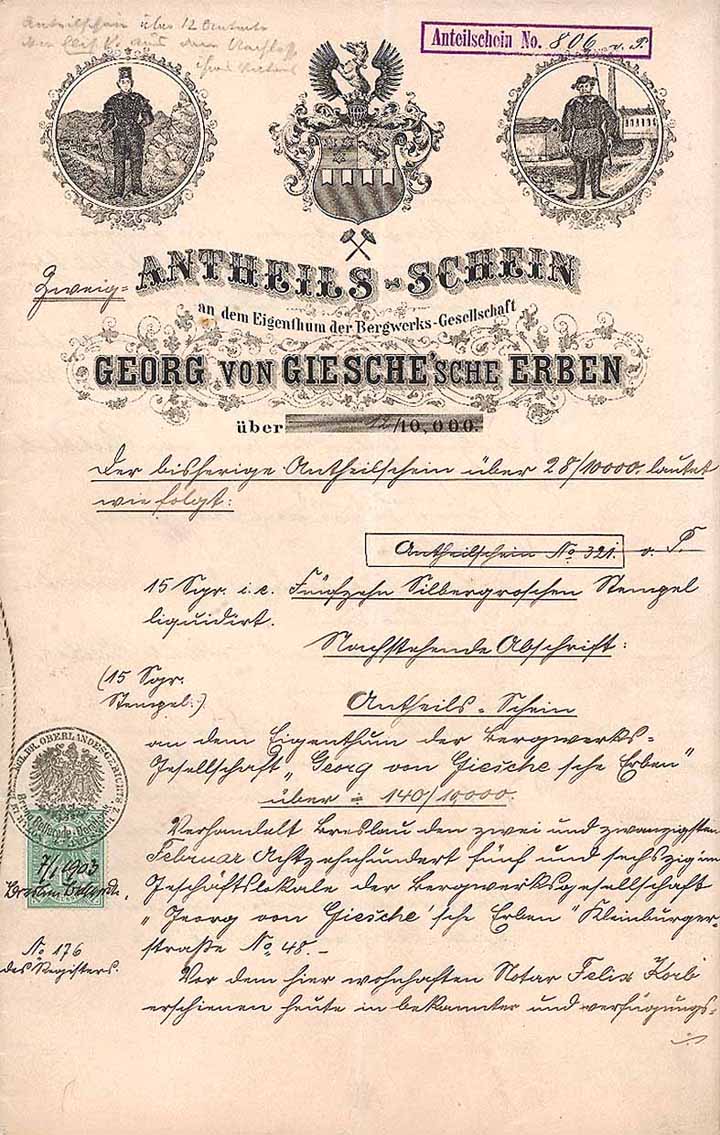 Anteilschein über 12 Anteile
aus dem Nachlass
Anteilschein No. 806 v. P.
Zweig-
ANTHEILS-SCHEIN
an dem Eigenthum der Bergwerks-Gesellschaft
GEORG VON GIESCHE'SCHE ERBEN
über 12/10,000.
Der bisherige Antheilschein über 28/10000 lautet
wie folgt:
Antheilschein No 321. v. P.
15 Sgr. i.e. Fünfzehn Silbergroschen Stempel
liquidirt.
Nachstehende Abschrift:
(15 Sgr.
Stempel.)
Antheils-Schein
an dem Eigenthum der Bergwerks-
Gesellschaft „Georg von Giesche'sche Erben"
über 140/10,000.
Verhandelt Breslau den zwei und zwanzigsten
Februar Achtzehnhundert fünf und sechszig im
Geschäftslokale der Bergwerksgesellschaft
„Georg von Giesche'sche Erben" Kleinburger-
straße No. 48.-
Vor dem hier wohnhaften Notar Felix Korb
erschienen heute in bekannter und verfügungs-
OBERLANDESGERICHTS
7/1 1903
No 176
des Registers.